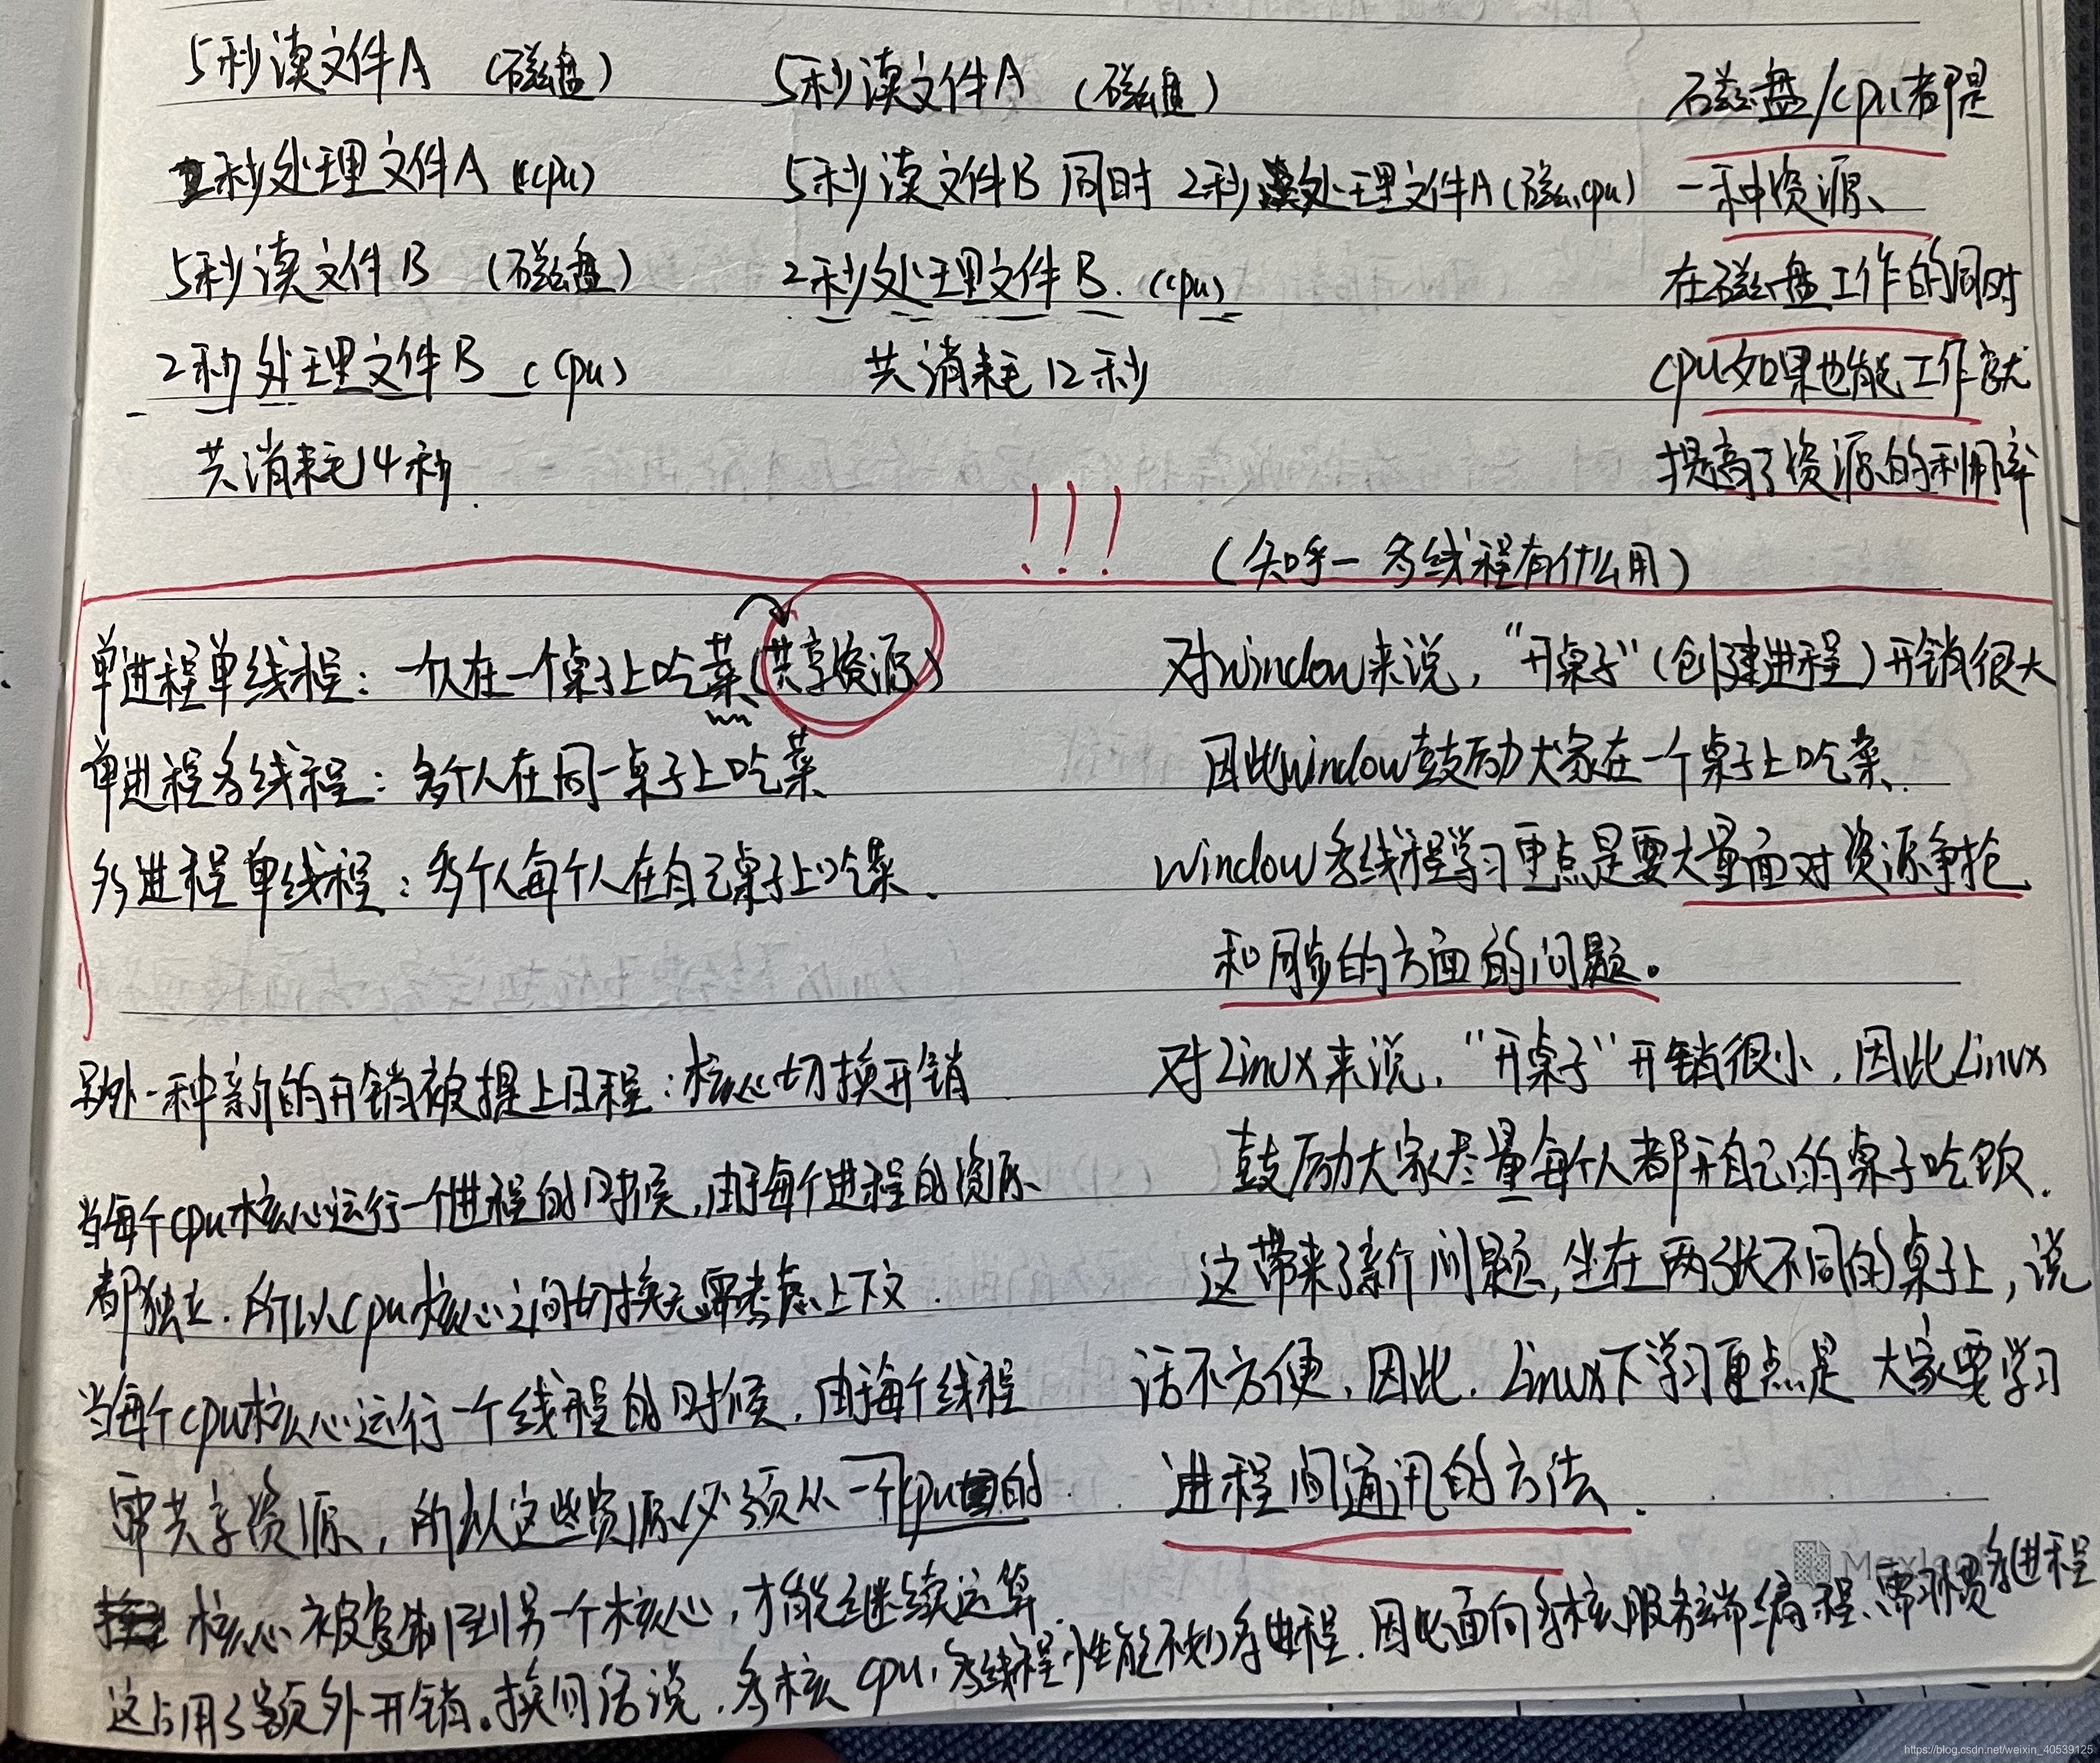 5秒读文件A （磁盘）
2秒处理文件A （cpu）
5秒读文件B （磁盘）
2秒处理文件B （cpu）
共消耗14秒.
5秒读文件A （磁盘）
5秒读文件B 同时 2秒处理文件A（磁盘,cpu）
2秒处理文件B. （cpu）
共消耗12秒
磁盘/cpu都是
一种资源、
在磁盘工作的同时
cpu如果也能工作就
提高了资源的利用率
!!!
（知乎一多线程有什么用）
单进程单线程：一个人在一个桌子上吃菜（共享资源）
单进程多线程：多个人在同一桌子上吃菜
多进程单线程：多个人每个人在自己桌子上吃菜.
对window来说，“开桌子”（创建进程）开销很大
因此window鼓励大家在一个桌子上吃菜.
window多线程学习重点是要大量面对资源争抢
和同步的方面的问题。
另外一种新的开销被提上日程：核心切换开销
当每个cpu核心运行一个进程的时候,由于每个进程的资源
都独立.所以cpu核心之间切换无需考虑上下文.
当每个cpu核心运行一个线程的时候.由于每个线程
需共享资源，所以这些资源必须从一个cpu的
核心被复制到另一个核心，才能继续运算.
这占用了额外开销。换句话说，多核cpu，多线程性能不如多进程.因此面向多核服务端编程、需习惯多进程
对Linux来说，“开桌子”开销很小，因此Linux
鼓励大家尽量每个人都开自己的桌子吃饭.
这带来了新个问题，坐在两张不同的桌子上，说
话不方便，因此，Linux下学习重点是 大家要学习
进程间通讯的方法.
https://blog.csdn.net/weixin_40539125